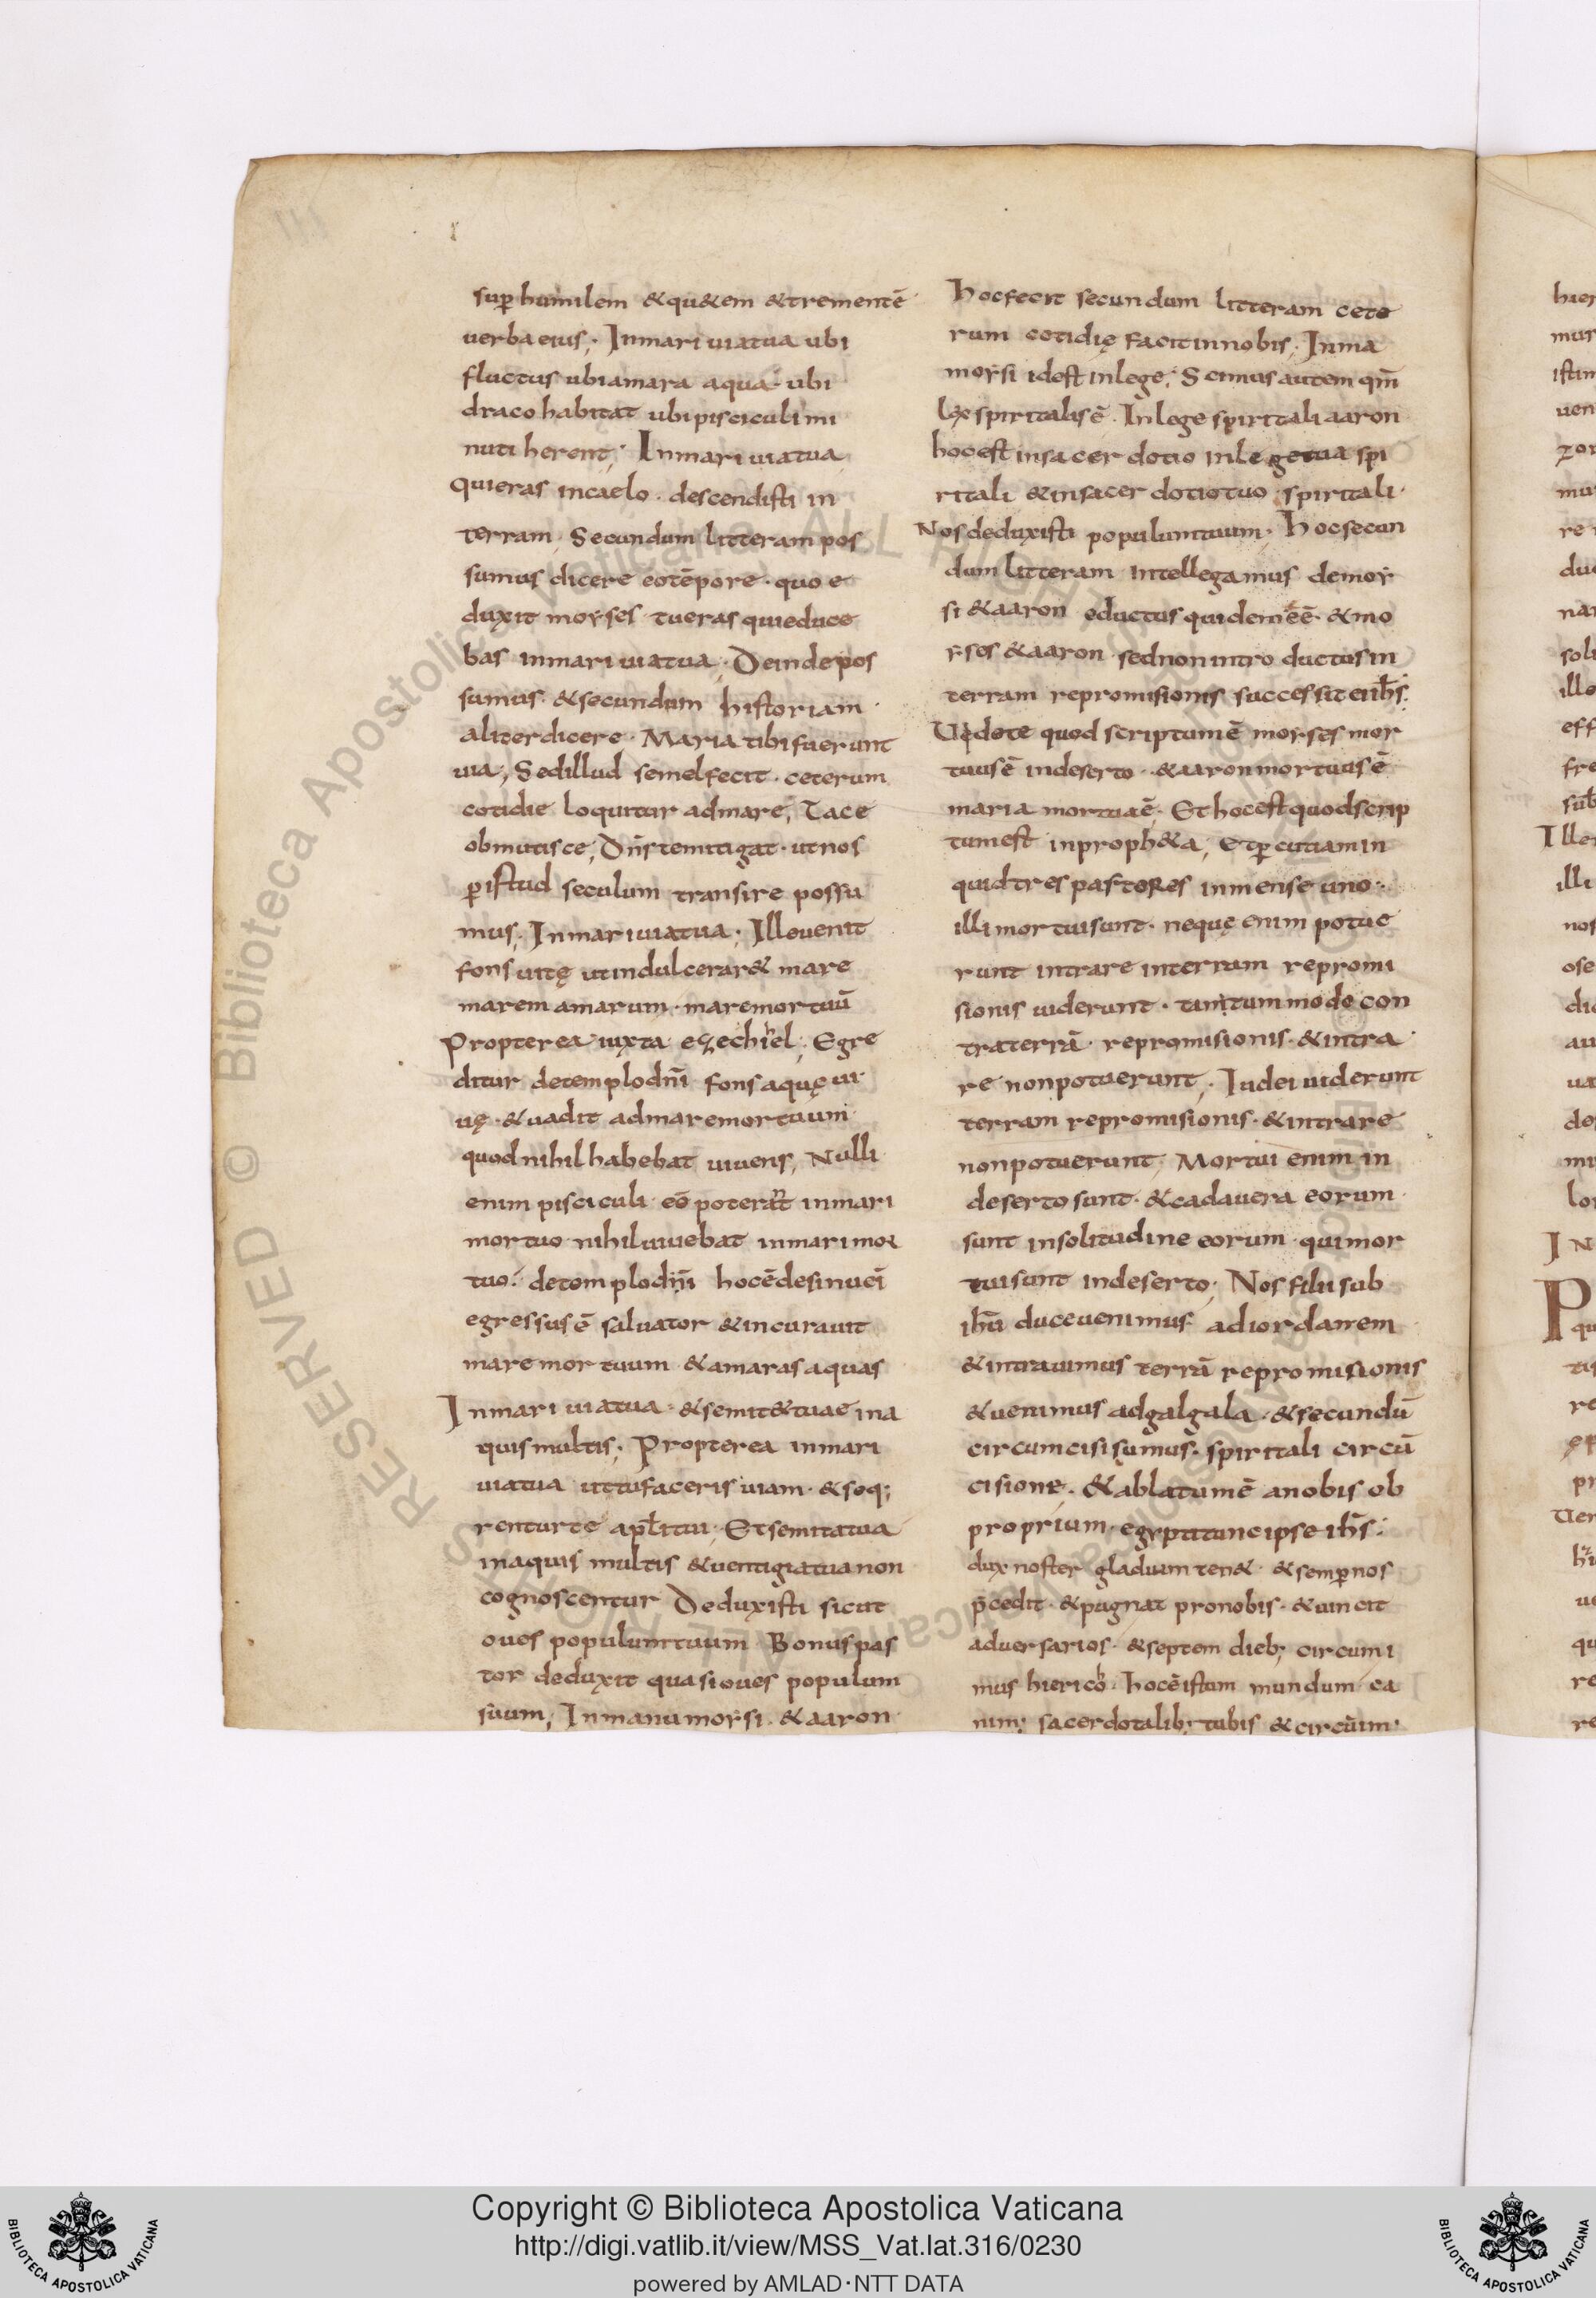 sup̄ humilem & qu&em & trementē
uerba eius; In mari uia tua ubi
fluctus ubi amara aqua · ubi
draco habitat ubi pisciculi mi
nuti herent; In mari uia tua
qui eras in caelo · descendisti in
terram; Secundum litteram pos
sumus dicere eo tēpore · quo e
duxit moyses · tu eras qui educe
bas in mari uia tua; Deinde pos
sumus · & secundum historiam
aliter dicere · Maria tibi fuerunt
uia; Sed illud semel fecit · ceterum
cotidie loquitur ad mare; Tace
obmutisce; Dn̄s te mitigat · ut nos
p̄ istud seculum transire possu
mus; In mari uia tua; Ille uenit
fons uitę ut indulcerar& mare
marem amarum · mare mortuū
Propterea iuxta ezechihel; Egre
ditur de templo dn̄i fons aquę ui
uę · & uadit ad mare mortuum
quod nihil habebat uiuens; Nulli
enim pisciculi eō poterant in mari
mortuo nihil uiuebat in mari mor
tuo; de templo dn̄i hoc ē de sinu ei
egressus ē saluator & in curauit
mare mortuum & amaras aquas
In mari uia tua · & semit& tuae in a
quis multis; Propterea in mari
uia tua ut tu faceris uiam · & seq;
rentur te apl̄i tui; Et semita tua
in aquis multis & uentigia tua non
cognoscentur Deduxisti sicut
oues populum tuum Bonus pas
tor deduxit quasi oues populum
suum; In manu moysi · & aaron
Hoc fecit secundum litteram cete
rum cotidię facit in nobis; In ma
moysi id est in lege; Scimus autem qm̄
lex spiritalis ē · In lege spiritali aaron
hoc est in sacerdotio in lege tua spi
ritali & in sacerdotio tuo spiritali ·
Nos deduxisti populum tuum; Hoc secun
dum litteram intellegamus de moy
si & aaron eductus quidem ēē · & mo
yses & aaron sed non introductus in
terram repromisionis successit ei ih̄s;
Uidete quod scriptum ē moyses mor
tuus ē in deserto · & aaron mortuus ē
maria mortua ē; Et hoc est quod scrip
tum est in proph&a; Et p̄cutiam in
quid tres pastores in mense uno;
illi mortui sunt · neque enim potue
runt intrare in terram repromi
sionis uiderunt · tantummodo con
tra terrā · repromisionis · & intra
re non potuerunt; Iudei uiderunt
terram repromisionis · & intrare
non potuerunt; Mortui enim in
deserto sunt · & cadauera eorum
sunt in solitudine eorum qui mor
tui sunt in deserto; Nos filii sub
ih̄u duce uenimus ad iordanem
& intrauimus terrā repromisionis
& uenimus ad galgala · & secundū
circumcisi sumus · spiritali circū
cisione · & ablatum ē a nobis ob
proprium · egypti tunc ipse ih̄s;
dux noster gladium ten& · & semp̄ nos
p̄cedit · & pugnat pro nobis · & uincit
aduersarios · & septem dieb; circumi
mus hiericho · hoc ē istum mundum ca
nim; sacerdotalib; tubis & circūim;
Copyright © Biblioteca Apostolica Vaticana
http://digi.vatlib.it/view/MSS_Vat.lat.316/0230
powered by AMLAD·NTT DATA
BIBLIOTECA APOSTOLICA VATICANA
BIBLIOTECA APOSTOLICA VATICANA